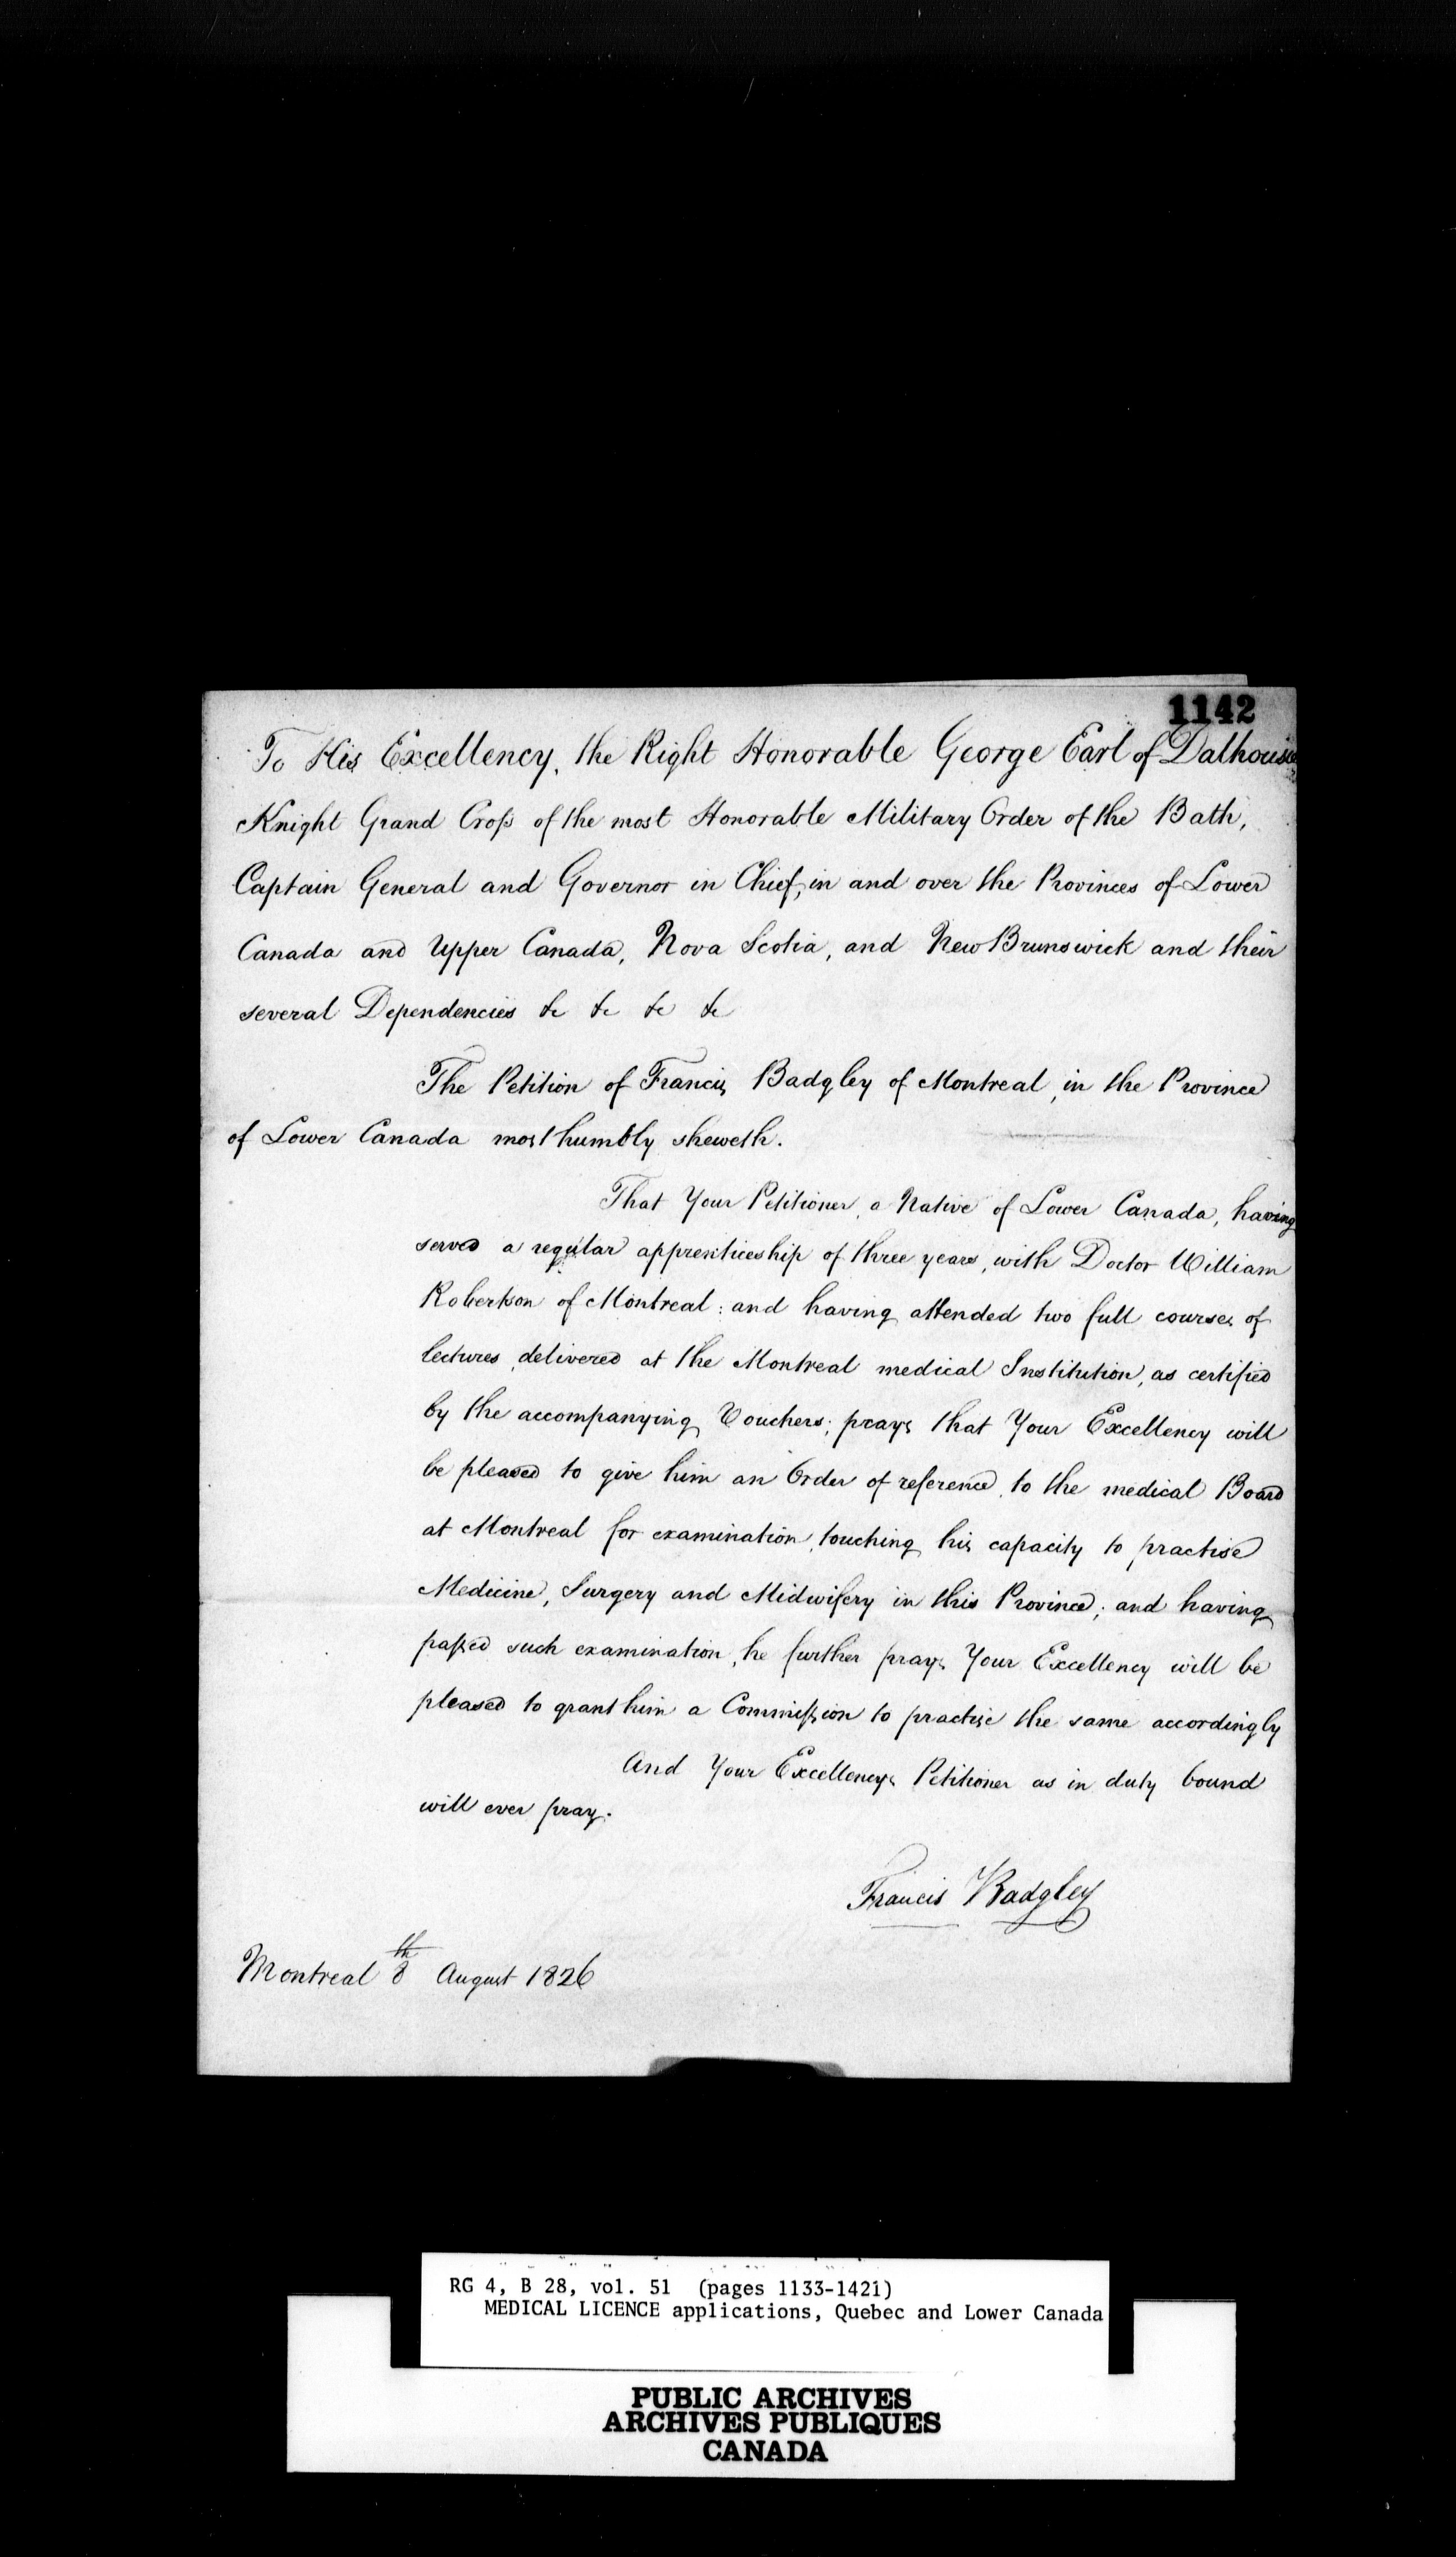 1142
To His Excellency, the Right Honorable George Earl of Dalhousie
Knight Grand Croſs of the most Honorable Military Order of the Bath,
Captain General and Governor in Chief, in and over the Provinces of Lower
Canada and Upper Canada, Nova Scotia, and New Brunswick and their
several Dependencies &c &c &c &c
The Petition of Francis Badgley of Montreal, in the Province
of Lower Canada most humbly sheweth.
That Your Petitioner, a Native of Lower Canada, having
served a regular apprenticeship of three years, with Doctor William
Robertson of Montreal: and having attended two full courses of
lectures, delivered at the Montreal medical Institution, as certified
by the accompanying Vouchers; prays that Your Excellency will
be pleased to give him an Order of reference, to the medical Board
at Montreal for examination, touching his capacity to practise
Medicine, Surgery and Midwifery in this Province; and having
paſsed such examination, he further prays Your Excellency will be
pleased to grant him a Commiſsion to practise the same accordingly
And Your Excellencys Petitioner as in duty bound
will ever pray.
Francis Badgley
Montreal 8th August 1826
RG 4, B 28, vol. 51 (pages 1133-1421)
MEDICAL LICENCE applications, Quebec and Lower Canada
PUBLIC ARCHIVES
ARCHIVES PUBLIQUES
CANADA